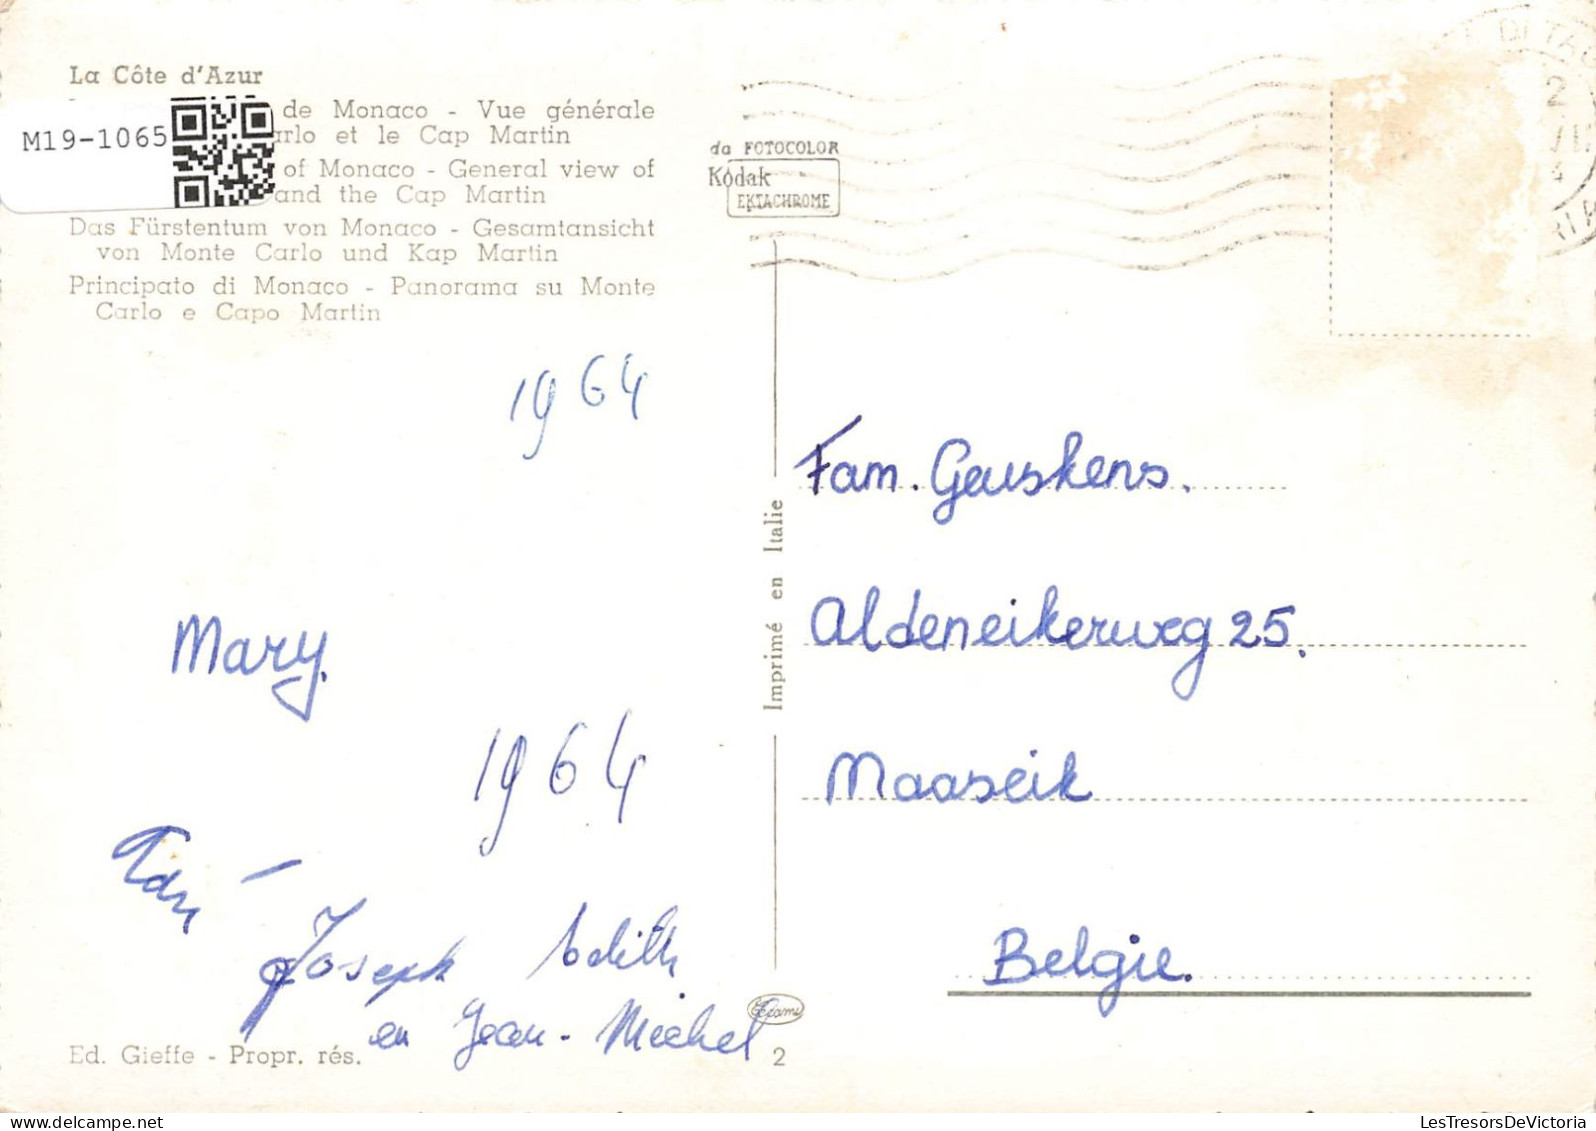 La Côte d'Azur
de Monaco - Vue générale
rlo et le Cap Martin
of Monaco - General view of
and the Cap Martin
Das Fürstentum von Monaco - Gesamtansicht
von Monte Carlo und Kap Martin
Principato di Monaco - Panorama su Monte
Carlo e Capo Martin
M19-1065
da FOTOCOLOR
Kodak
EKTACHROME
1964
Mary
1964
Joseph Edith
en Jean-Michel
Ed. Gieffe - Propr. rés.
Imprimé en Italie
2
Fam. Geuskens.
Aldeneikerweg 25.
Maaseik
Belgie.
LesTresorsDeVictoria